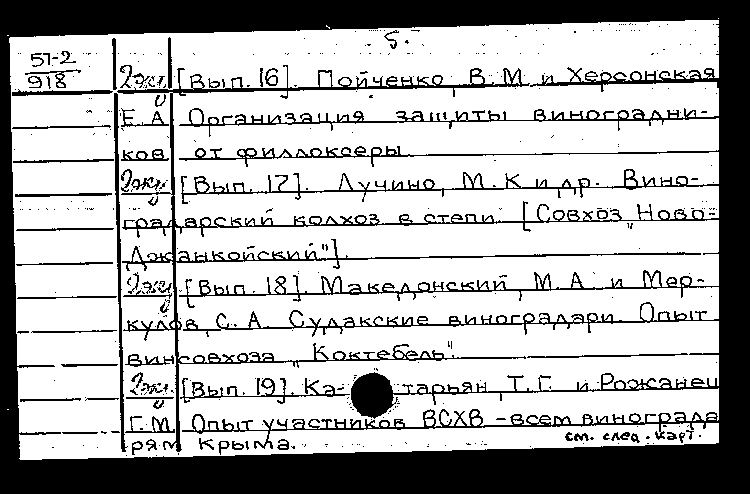 5.
57-2
918
2экз. [Вып. 16]. Пойченко, В. М. и Херсонская,
Е. А. Организация защиты виноградни-
ков от филлоксеры.
2экз. [Вып. 17]. Лучино, М. К и др. Вино-
градарский колхоз в степи. [Совхоз „Ново-
Джанкойский"].
2экз. [Вып. 18]. Македонский, М. А. и Мер-
кулов, С. А. Судакские виноградари. Опыт
винсовхоза „Коктебель".
2экз. [Вып. 19]. Ка- тарьян, Т. Г. и Рожанец
Г. М. Опыт участников ВСХВ - всем винограда
рям Крыма.
см. след. карт.